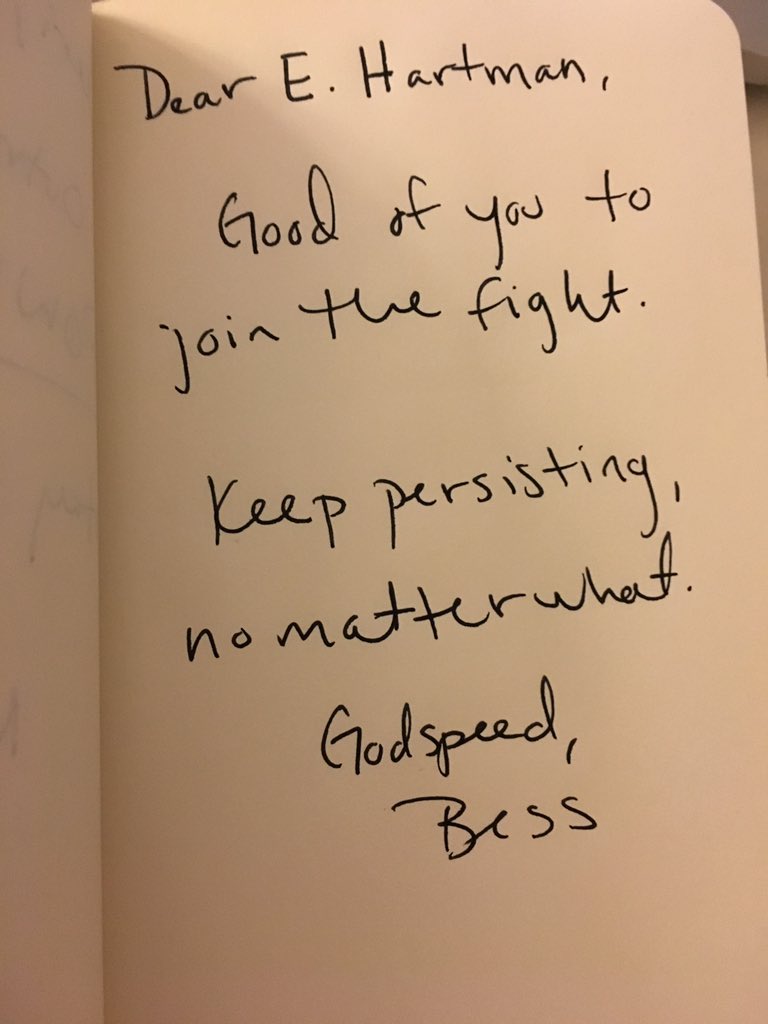 Dear E. Hartman,
Good of you to
join the fight.
Keep persisting,
no matter what.
Godspeed,
Bess